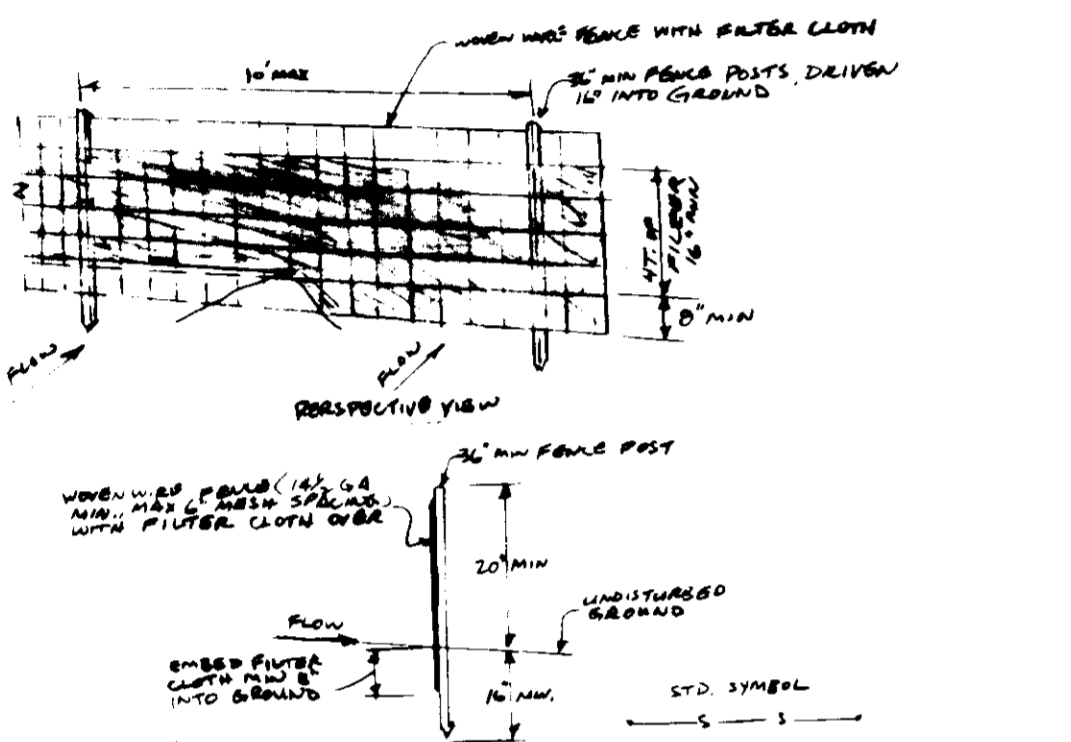 WOVEN WIRE FENCE WITH FILTER CLOTH
10' MAX
36" MIN FENCE POSTS, DRIVEN
16" INTO GROUND
HT. OF
FILTER
16" MIN
8" MIN
FLOW
FLOW
PERSPECTIVE VIEW
36" MIN FENCE POST
WOVEN WIRE FENCE (14 1/2 GA
MIN., MAX 6" MESH SPACING)
WITH FILTER CLOTH OVER
20" MIN
UNDISTURBED
GROUND
FLOW
EMBED FILTER
CLOTH MIN 8"
INTO GROUND
16" MIN.
STD. SYMBOL
S S